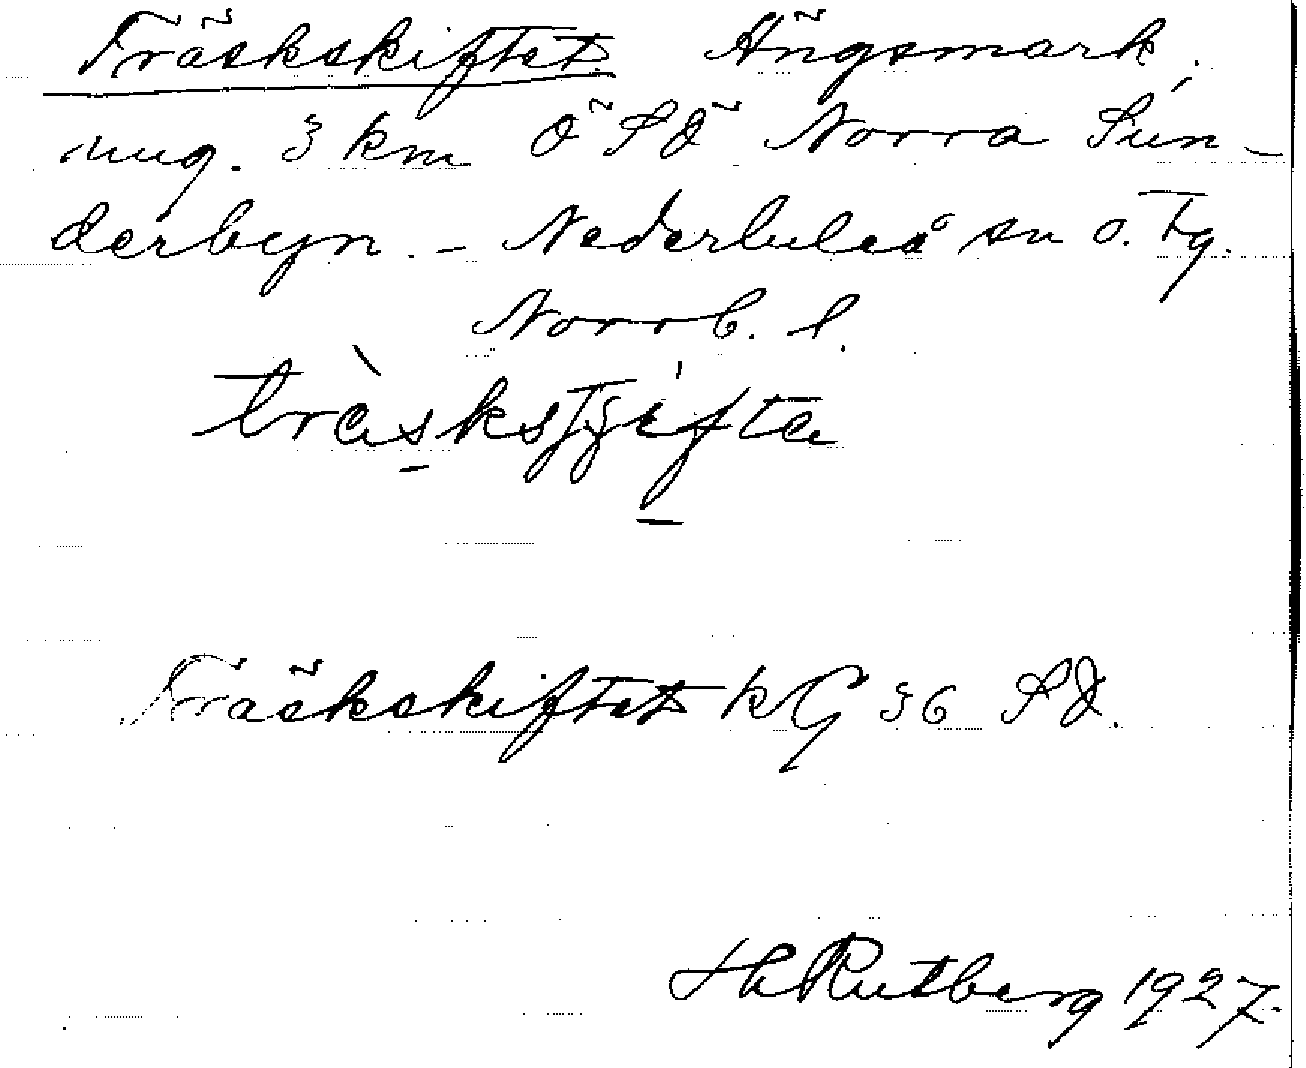 Träskskiftet Ängsmark.
ung. 3 km Ö S Ö Norra Sun-
derbyn. - Nederluleå sn o. Tg.
Norrb. l.
Träskskiftet kG 36 SÖ.
H Rutberg 1927.